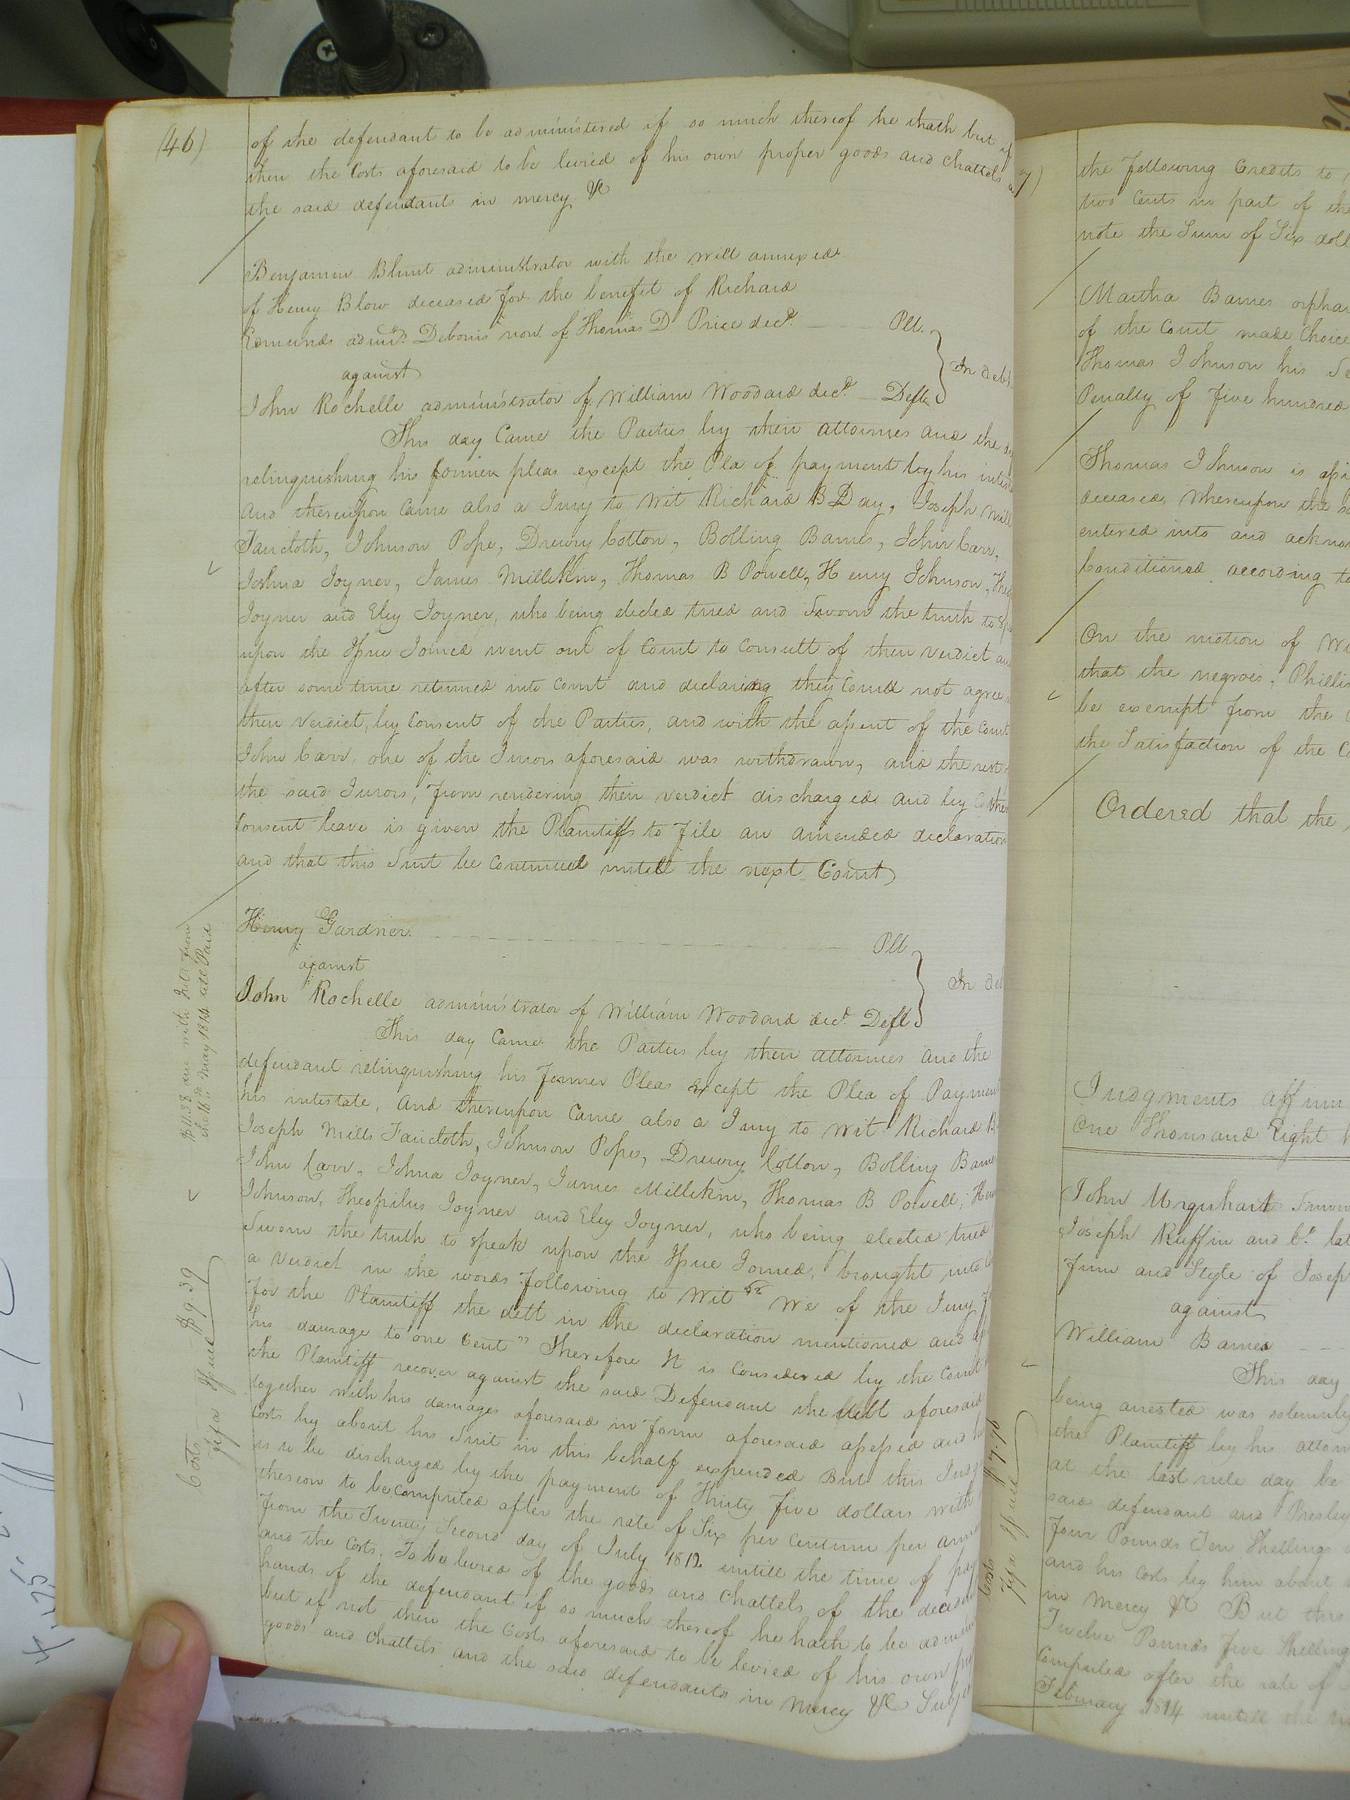 (46)
of the defendant to be administered if so much thereof he hath but if
then the Costs aforesaid to be levied of his own proper goods and Chattels
the said defendants in mercy &c
Benjamin Blunt administrator with the will annexed
of Henry Blow deceased for the benefit of Richard
Edmunds admr. Debonis non of Thomas D Price decd. Plt.
against
In debt
John Rochelle administrator of William Woodard decd. Deft.
This day Came the Parties by their attornies and the
relinquishing his former pleas except the Plea of payment by his
and thereupon Came also a Jury to Wit Richard B Day, Joseph Mills
Faircloth, Johnson Pope, Drewry Cotton, Bolling Barnes, John Carr,
Joshua Joyner, James Millekin, Thomas B Powell, Henry Johnson,
Joyner and Eley Joyner, who being elected tried and Sworn the truth to
upon the Issue Joined went out of Court to Consult of their Verdict
after some time returned into Court and declaring they Could not agree
their Verdict, by Consent of the Parties, and with the assent of the Court
John Carr, one of the Jurors aforesaid was withdrawn, and the rest
the said Jurors, from rendering their verdict discharged and by
Consent leave is given the Plaintiffs to File an amended declaration
and that this Suit be Continued untill the next Court
Henry Gardner Plt
against
In
John Rochelle administrator of William Woodard decd. Deft
This day Came the Parties by their attornies and the
defendant relinquishing his Former Pleas Except the Plea of Payment
his intestate, And thereupon Came also a Jury to Wit Richard B
Joseph Mills Faircloth, Johnson Pope, Drewry Cotton, Bolling Barnes
John Carr, Joshua Joyner, James Millekin, Thomas B Powell,
Johnson, Theopilus Joyner and Eley Joyner, who being elected tried
Sworn the truth to speak upon the Issue Joined, brought into
a Verdict in the words Following to Wit "We of the Jury
For the Plaintiff the debt in the declaration mentioned and
his damage to one Cent" Therefore It is Considered by the Court
the Plaintiff recover against the said Defendant the debt aforesaid
together with his damages aforesaid in Form aforesaid assessed and
Costs by about his Suit in this behalf expended But this
is to be discharged by the payment of Thirty Five dollars with
thereon to be Computed after the rate of Six per Centum per
From the Twenty Second day of July 1812 untill the time of
and the Costs, To be levied of the goods and Chattels of the
hands of the defendant if so much thereof he hath to be
but if not then the Costs aforesaid to be levied of his own
goods and Chattels and the said defendants in Mercy &c
$11.33 due with Int. from
the 16th May 1814 all Paid
Costs $9.39
fifa Issued
the Following Credits to
two Cents no part of the
note the Sum of Six
Martha Barnes
of the Court made Choice
Thomas Johnson his
Penalty of Five hundred
Thomas Johnson is
deceased, Whereupon the
entered into and
Conditioned according to
On the motion of
that the negroes, Phillis
be exempt from the
the Satisfaction of the
Ordered that the
Judgments
One Thousand Eight
John Urquhart
Joseph Ruffin and Co.
Firm and Style of
against
William Barnes
This day
being arrested was solemnly
the Plaintiff by his
at the last rule day be
said defendant and Presley
Four Pounds Ten Shellings
and his Costs by him about
in mercy &c But this
Twelve Pounds Five Shellings
Computed after the rate of
February 1814 untill the
Costs $7.76
fifa Issued